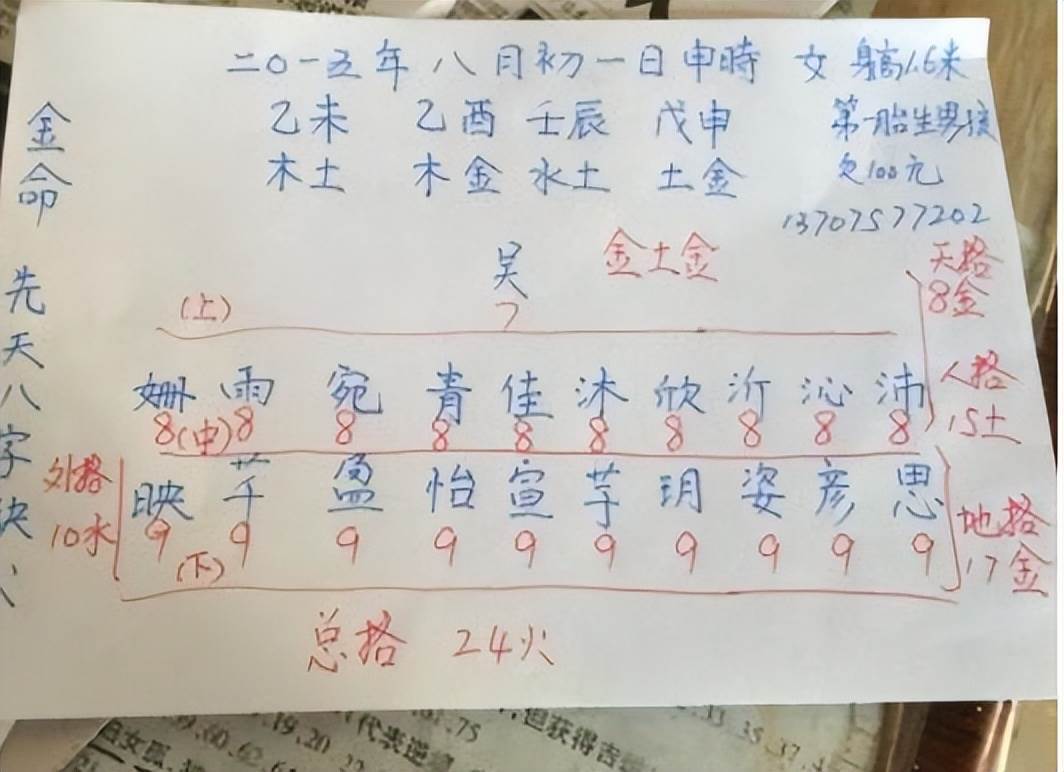 二〇一五年 八月初一日申時 女 身高1.6米
乙未 乙酉 壬辰 戊申 第一胎生男孩
木土 木金 水土 土金 欠100元
13707577202
金命
先天八字缺火
吴 金土金
7
(上)
天格
8金
姗 雨 宛 青 佳 沐 欣 沂 沁 沛
8(中)8 8 8 8 8 8 8 8 8
人格
15土
外格
10水
映 芊 盈 怡 宣 芋 玥 姿 彦 思
9 9 9 9 9 9 9 9 9 9
(下)
地格
17金
总格 24火
75
19.20
代表逆
但获得吉
33.35.37